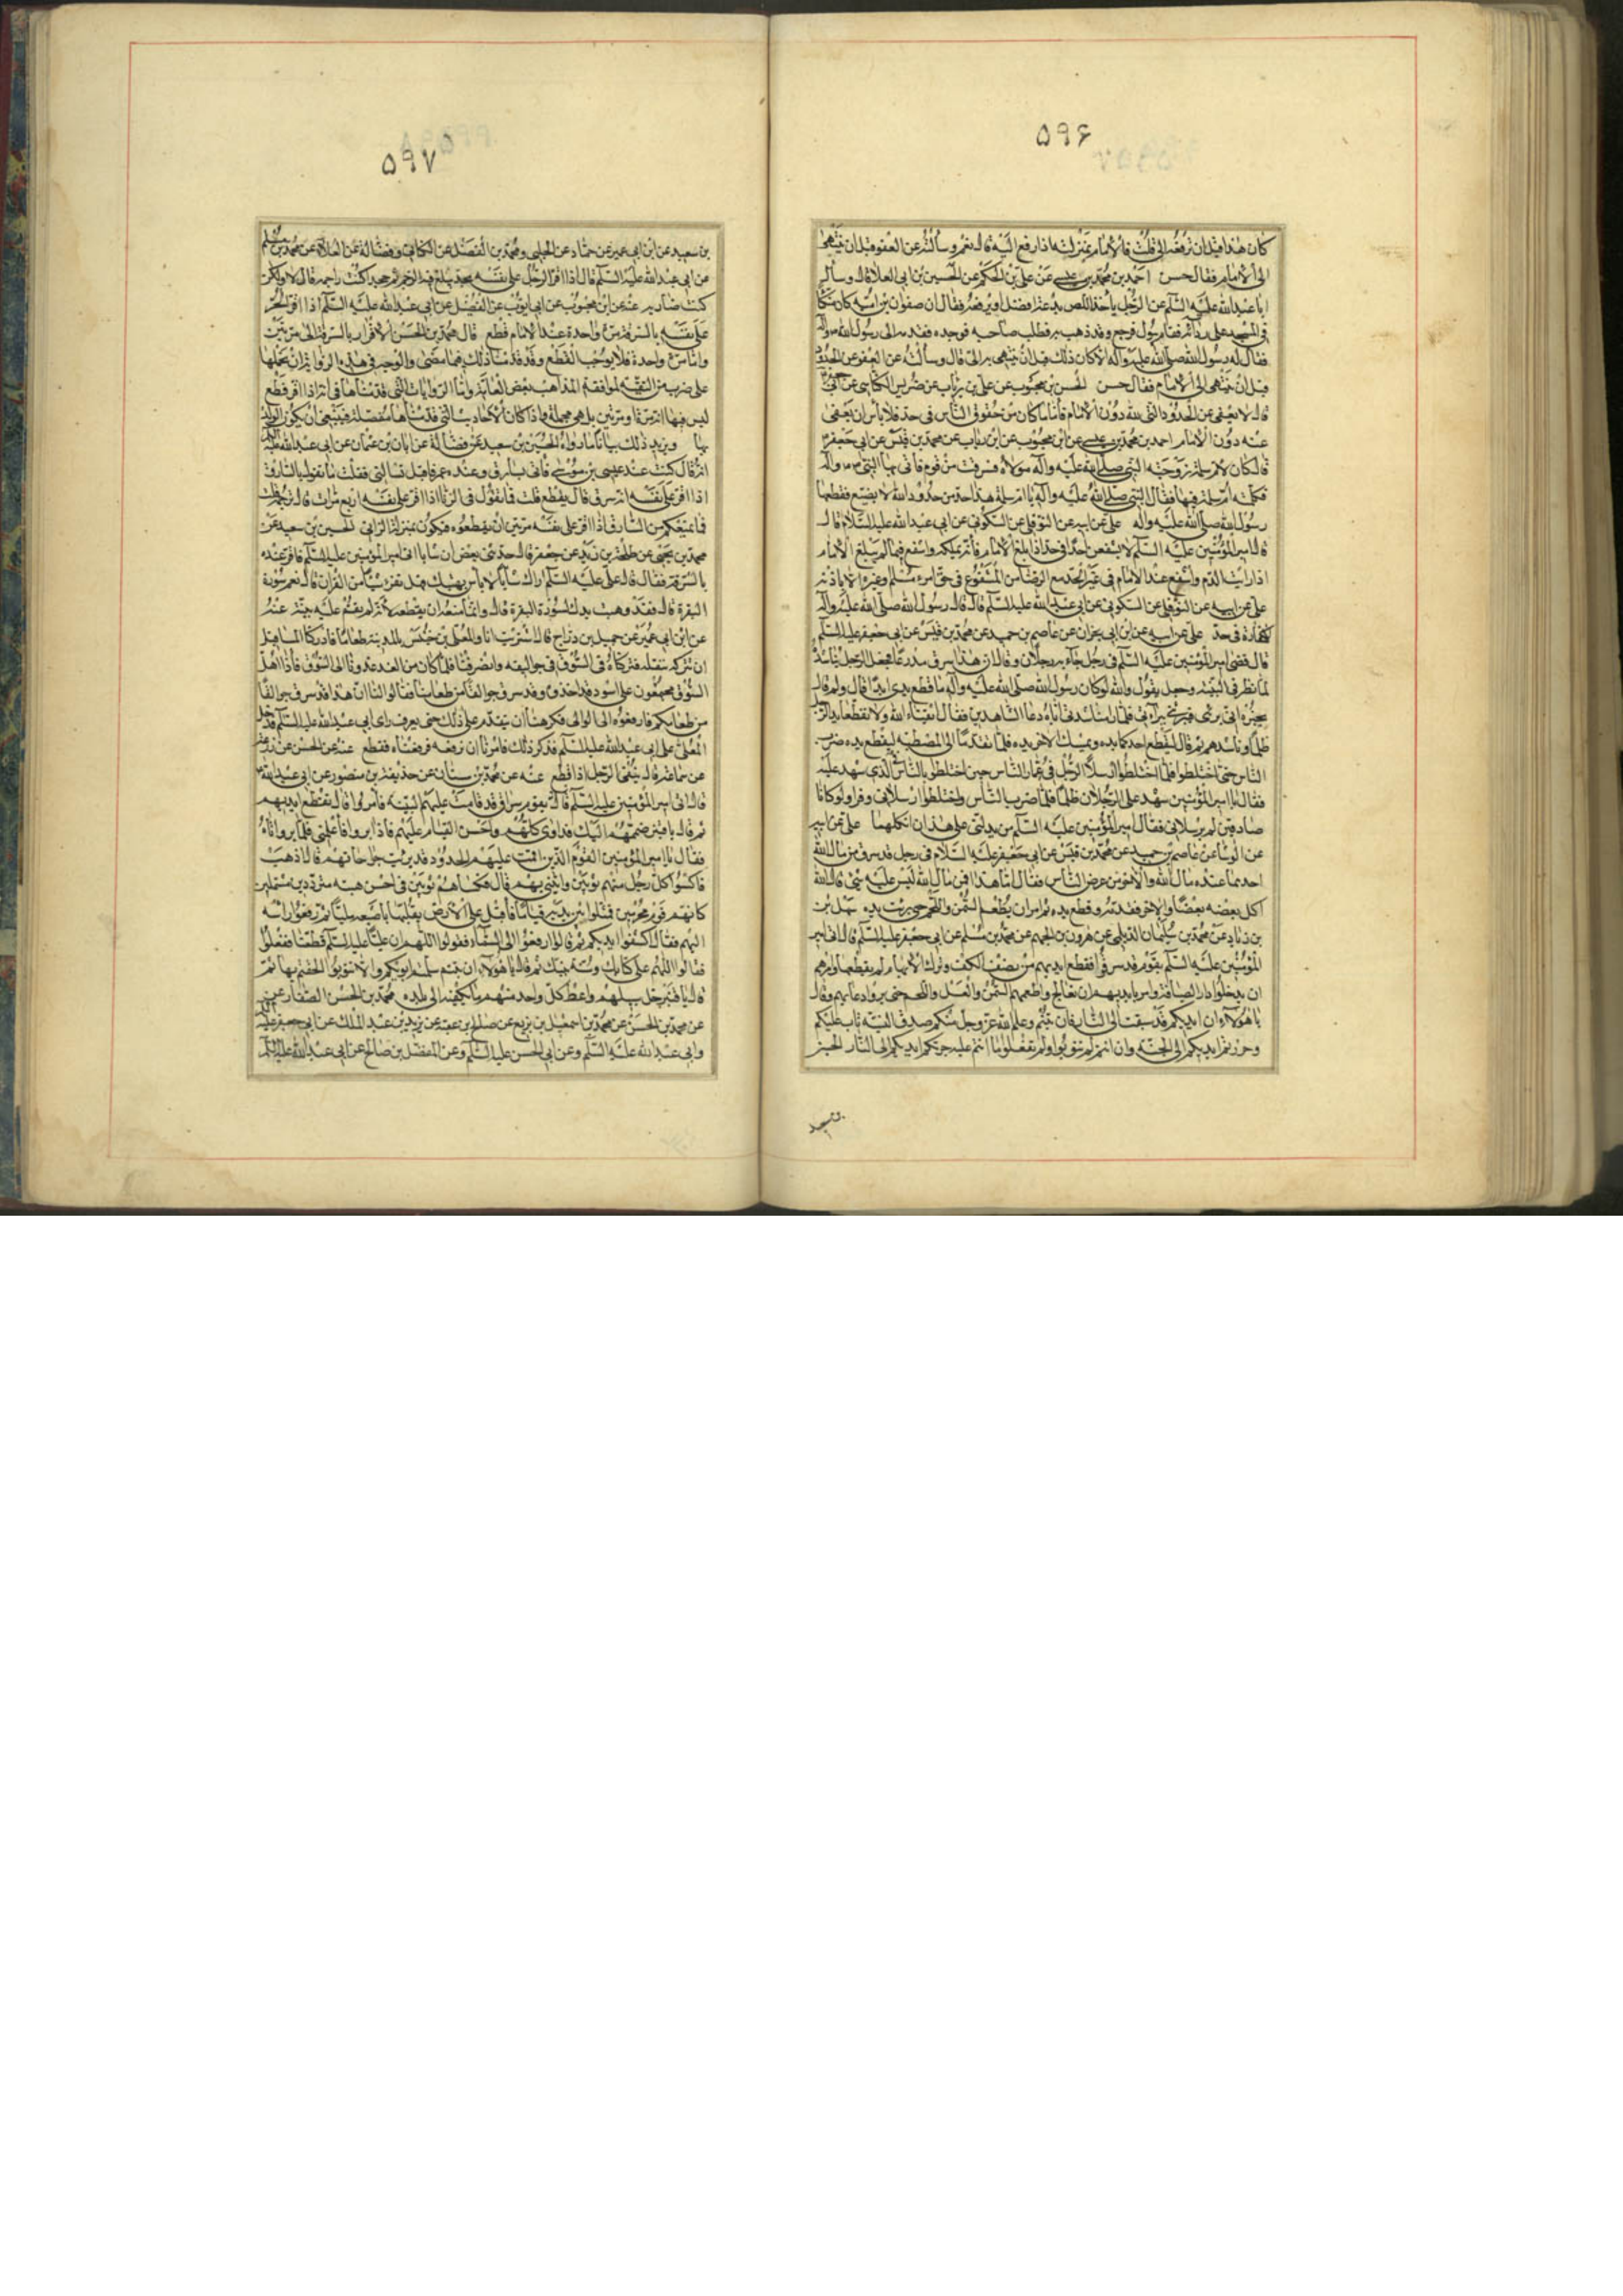 ۵۹۶
كان هذا قبل ان ترفعه الي قلت فالامام بمنزلته اذا رفع اليه قال نعم وسألته عن العفو قبل ان ينتهى
الى الامام فقال حسن احمد بن محمد بن عيسى عن علي بن الحكم عن الحسين بن ابي العلا قال سألت
ابا عبد الله عليه السلم عن الرجل يأخذ اللص يدعه افضل او يرفعه فقال ان صفوان بن اميه كان متكئا
في المسجد على ردائه فقام يبول فرجع وقد ذهب به فطلب صاحبه فوجده فقدمه الى رسول الله
فقال له رسول الله صلى الله عليه وآله الا كان ذلك قبل ان ينتهى به الي قال وسألته عن العفو عن الحدود
قبل ان ينتهى الى الامام فقال حسن الحسن بن محبوب عن علي بن رئاب عن ضريس الكناسي عن
قال لا يعفى عن الحدود التي لله دون الامام فأما ما كان من حقوق الناس في حد فلا بأس ان يعفى
عنه دون الامام احمد بن محمد بن عيسى عن ابن محبوب عن ابن رئاب عن محمد بن قيس عن ابي جعفر
قال كان لام سلمة زوجة النبي صلى الله عليه وآله مولاه فسرقت من قوم فاتي بها النبي وآله
فكلمته ام سلمة فيها فقال النبي صلى الله عليه وآله يا ام سلمة هذا حد من حدود الله لا يضيع فقطعها
رسول الله صلى الله عليه وآله علي عن ابيه عن النوفلي عن السكوني عن ابي عبد الله عليه السلام قال
قال امير المؤمنين عليه السلم لا يشفعن احد في حد اذا بلغ الامام فانه يملكه واشفع فيما لم يبلغ الامام
اذا رايت الندم واشفع عند الامام في غير الحد مع الرضا من المشفوع في حق امرء مسلم وغيره الا باذنه
علي عن ابيه عن النوفلي عن السكوني عن ابي عبد الله عليه السلم قال قال رسول الله صلى الله عليه وآله
لا كفارة في حد علي عن ابيه عن ابن ابي نجران عن عاصم بن حميد عن محمد بن قيس عن ابي جعفر عليه السلم
قال قضى امير المؤمنين عليه السلم في رجل جاء به رجلان وقالا ان هذا سرق درعا فجعل الرجل يناشده
لما نظر في البينة وجعل يقول والله لو كان رسول الله صلى الله عليه وآله ما قطع يدي ابدا قال ولم قال
يخبره اني بريء فيبرئني ببرائتي فلما راى مناشدته اياه دعا الشاهدين فقال اتقيا الله ولا تقطعا يد الرجل
ظلما وناشدهم ثم قال ليقطع احدكما يده ويمسك الاخر يده فلما تقدما الى المصطبه ليقطع يده ضرب
الناس حتى اختلطوا فلما اختلطوا ارسلا الرجل في غمار الناس حين اختلطوا بالناس الذي شهد عليه
فقال يا امير المؤمنين شهد علي الرجلان ظلما فلما ضرب الناس واختلطوا ارسلاني وفرا ولو كانا
صادقين لم يرسلاني فقال امير المؤمنين عليه السلم من يدلني على هذان انكلهما علي عن ابيه
عن الوشا عن عاصم بن حميد عن محمد بن قيس عن ابي جعفر عليه السلام في رجل قد سرق من مال الله
احدهما عنده مال الله والاخر من عرض الناس فقال اما هذا فمن مال الله ليس عليه شيء قال الله
اكل بعضه بعضا والاخر فقدمه وقطع يده ثم امر ان يطعم السمن واللحم حتى برئت يده سهل بن
بن زياد عن محمد بن سليمان الديلمي عن هرون بن الجهم عن محمد بن مسلم عن ابي جعفر عليه السلم قال اتي امير
المؤمنين عليه السلم بقوم قد سرقوا فقطع ايديهم من نصف الكف وترك الابهام لم يقطعها وامرهم
ان يدخلوا دار الضيافة وامر بايديهم ان تعالج واطعمهم السمن والعسل واللحم حتى برؤا ودعا بهم وقال
يا هؤلاء ان ايديكم قد سبقت الى النار فان تبتم وعلم الله عز وجل منكم صدق النية تاب عليكم
وجررتم ايديكم الى الجنة وان انتم لم تتوبوا ولم تقلعوا عما انتم عليه جرتكم ايديكم الى النار الحسين
بن سعيد
۵۹۷
بن سعيد عن ابن ابي عمير عن حماد عن الحلبي ومحمد بن الفضيل عن الكناني وفضالة عن العلاء عن محمد بن مسلم
عن ابي عبد الله عليه السلم قال اذا اقر الرجل على نفسه بحد يبلغ فيه الرجم ثم جحد اكنت راجمه قال لا ولكن
كنت ضاربه عنه عن ابن محبوب عن ابي ايوب عن الفضيل عن ابي عبد الله عليه السلم اذا اقر الحر
على نفسه بالسرقة مرة واحدة عند الامام قطع قال محمد بن الحسن الاقرار بالسرقة الى مرتين
واما مرة واحدة فلا يوجب القطع وقد قدمنا ذلك فيما مضى والوجه في هذه الرواية ان نحملها
على ضرب من التقية لموافقة المذاهب بعض العامة واما الروايات التي قدمناها في انه اذا اقر قطع
ليس فيها انه مرة او مرتين بل هي مجملة واذا كان الاحاديث التي قدمناها مفصلة فينبغي ان يكون العمل
بها ويزيد ذلك بيانا ما رواه الحسين بن سعيد عن فضالة عن ابان بن عثمان عن ابي عبد الله عليه السلم
انه قال كنت عند عيسى بن موسى فاتي بسارق وعنده رجل من آل عمر فاقبل يسألني فقلت ما تقول بالسارق
اذا اقر على نفسه انه سرق قال يقطع قلت فما تقول في الزنا اذا اقر على نفسه اربع مرات قال نرجمه قلت
فما يمنعكم من السارق اذا اقر على نفسه مرتين ان تقطعوه فيكون بمنزلة الزاني الحسين بن سعيد عن
محمد بن يحيى عن طلحة بن زيد عن جعفر قال حدثني بعض ان شابا اتى امير المؤمنين عليه السلم فاقر عنده
بالسرقة فقال قال علي عليه السلم اراك شابا لا بأس بهيئتك فهل تقرء شيئا من القران قال نعم سورة
البقرة قال فقد وهبت يدك لسورة البقرة قال وانما منعه ان يقطعه لانه لم يقم عليه بينة عنه
عن ابن ابي عمير عن جميل بن دراج قال اشتريت انا والمعلى بن خنيس بالمدينة طعاما فادركنا المساء قبل
ان ننقله فتركناه في السوق في جواليقه وانصرفنا فلما كان من الغد غدونا الى السوق فاذا اهل
السوق مجتمعون على اسود قد اخذوه وقد سرق جوالقا من طعامنا فقالوا لنا ان هذا قد سرق جوالقا
من طعامكم فارفعوه الى الوالي فكرهنا ان نتقدم على ذلك حتى نعرف راى ابي عبد الله عليه السلم فدخل
المعلى على ابي عبد الله عليه السلم فذكر ذلك فامرنا ان نرفعه فرفعناه فقطع عنه عن الحسن عن زرعة
عن سماعة قال ينفى الرجل اذا قطع عنه عن محمد بن سنان عن حذيفة بن منصور عن ابي عبد الله
قال اتي امير المؤمنين عليه السلم قال بقوم سراق قد قامت عليهم البينة فأقروا قال فقطع ايديهم
ثم قال يا قنبر ضمهم اليك فداوي كلومهم واحسن القيام عليهم فاذا برؤا فأعلمني فلما برؤا اتاه
فقال يا امير المؤمنين القوم الذين اقمت عليهم الحدود قد برئت جراحاتهم قال اذهب
فاكسوا كل رجل منهم ثوبين وائتني بهم قال فكساهم ثوبين في احسن هيئه متردين مشتملين
كانهم قوم محرمين فمثلوا بين يديه قياما فأقبل على الارض ينكتها باصبعه مليا ثم رفع راسه
اليهم فقال اكشفوا ايديكم ثم قال ارفعوا الى السماء فقولوا اللهم ان عليا عليه السلم قطعنا ففعلوا
فقالوا اللهم على كتابك وسنة نبيك ثم قال يا هؤلاء ان تبتم سلمتم ايديكم والا تتوبوا الحقتم بها ثم
قال يا قنبر خل سبيلهم واعط كل واحد منهم ما يكفيه الى بلده محمد بن الحسن الصفار عن
عن محمد بن الحسن عن محمد بن اسمعيل بن بزيع عن صالح بن عقبة عن يزيد بن عبد الملك عن ابي جعفر عليه
وابي عبد الله عليه السلم وعن ابي الحسن عليه السلم وعن المفضل بن صالح عن ابي عبد الله عليه السلم